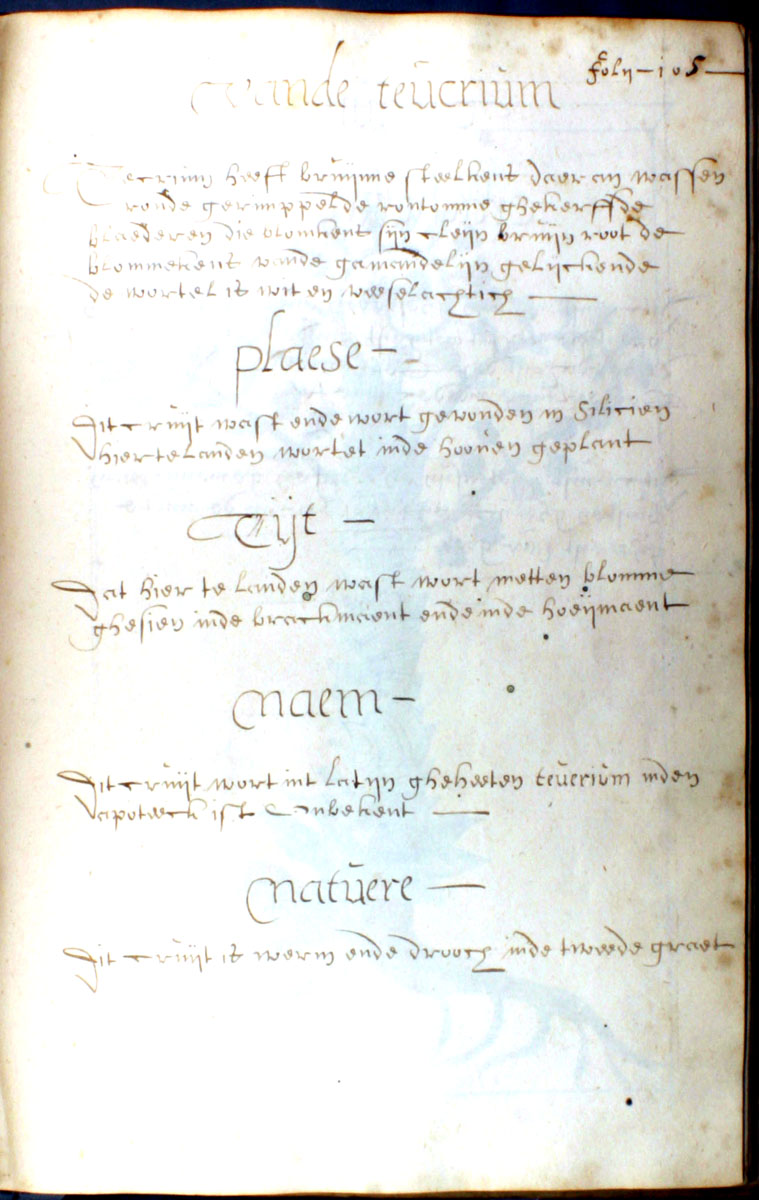 foly - 105 -
Vande teucrium
Tecrium heeft bruijnne steelkens daer an wassen
ronde gerimppelde rontomme ghekerffde
blaederen die blomkens sijn cleijn bruijn root de
blommekens vande gamandelijn gelijckende
de wortel is wit en veeselachtich —
plaese —
Dit cruijt wast ende wort gevonden in Silicien
hier te landen wortet inde hooven geplant
Tijt —
Dat hier te landen wast wort metten blomme
ghesien inde brackmaent ende inde hoeijmaent
Naem —
Dit cruijt wort int latijn gheheeten teucrium inden
apoteeck ist Onbekent —
Natuere —
Dit cruijt is werm ende drooch inde tweede graet